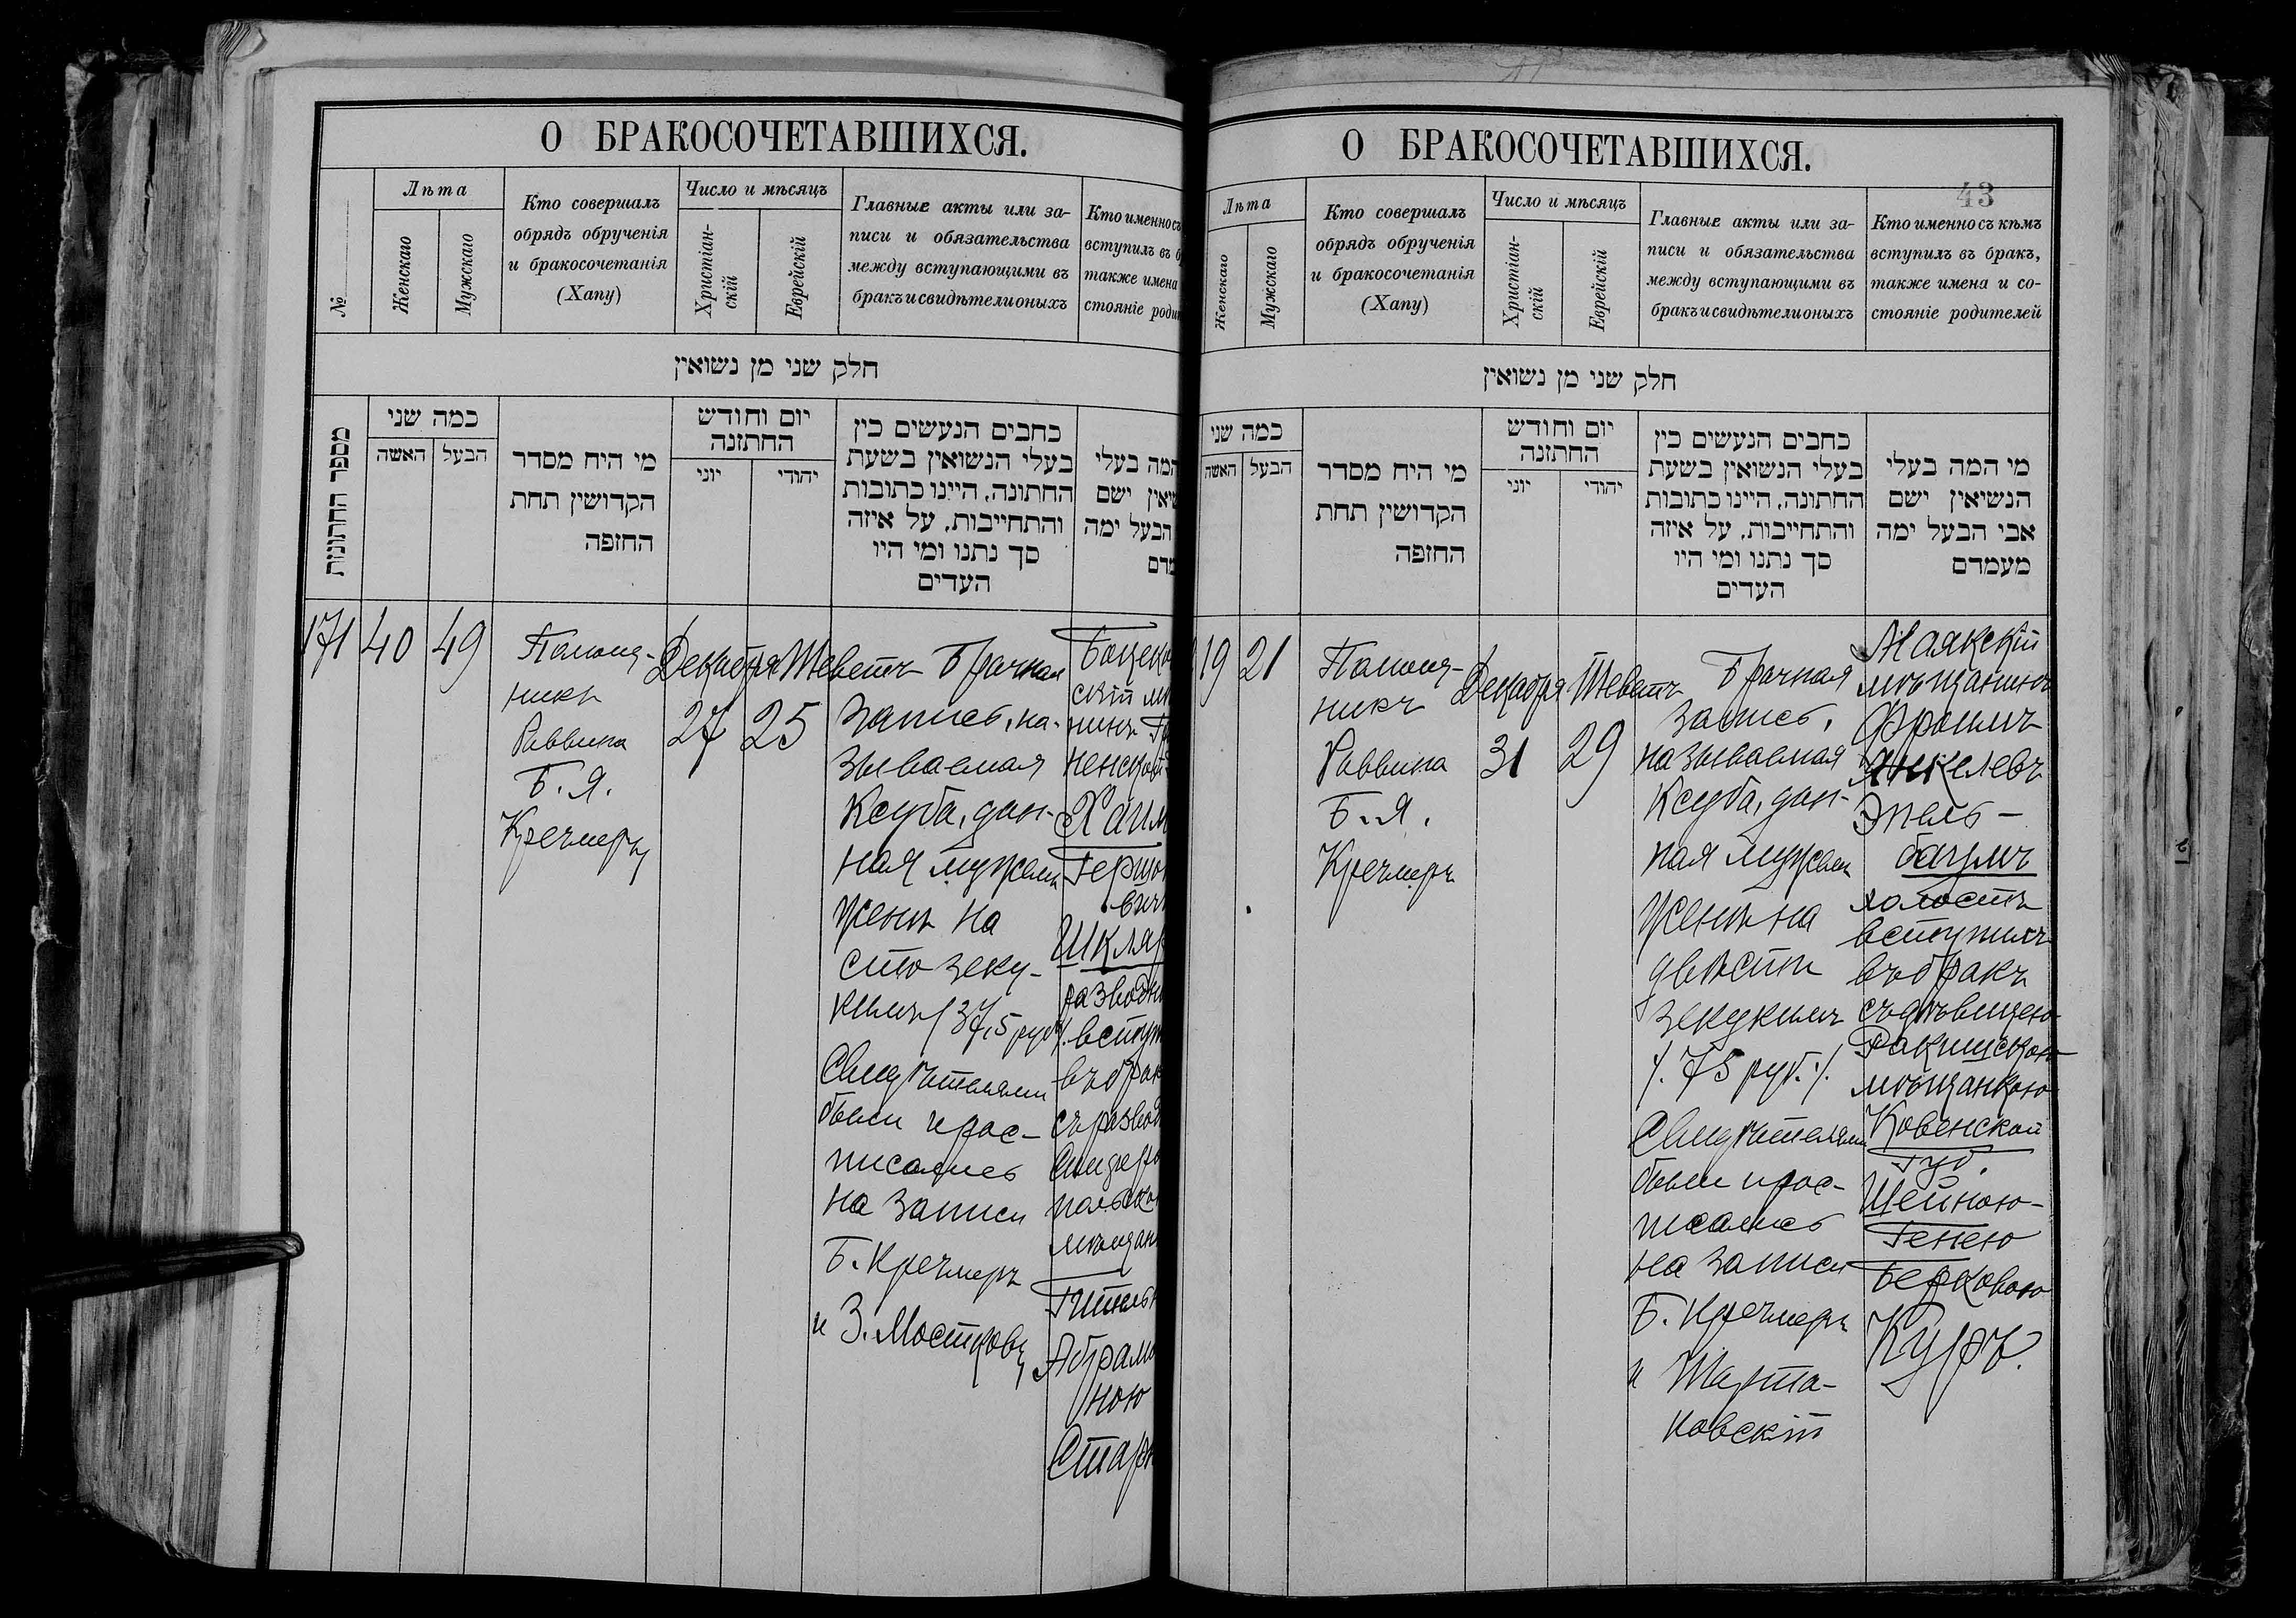 О БРАКОСОЧЕТАВШИХСЯ.
№
Лѣта
Женскаго
Мужскаго
Кто совершалъ
обрядъ обрученія
и бракосочетанія
(Хапу)
Число и мѣсяцъ
Христіан-
скій
Еврейскій
Главные акты или за-
писи и обязательства
между вступающими въ
бракъ и свидѣтели оныхъ
Кто именно съ
вступилъ въ
также имена
стояніе
חלק שני מן נשואין
מספר החתונות
כמה שני
האשה
הבעל
מי היח מסדר
הקדושין תחת
החופה
יום וחודש
החתונה
יוני
יהודי
כחבים הנעשים כין
בעלי הנשואין בשעת
החתונה, היינו כתובות
והתחייבות, על איזה
סך נתנו ומי היו
העדים
המה בעלי
ישם
הבעל ימה
171
40
49
Помощ-
никъ
Раввина
Б. Я.
Кречмеръ
Декабря
27
Теветъ
25
Брачная
запись, на-
зываемая
Ксуба, дан-
ная мужемъ
женѣ на
сто зеку-
кимъ (37,5 руб.).
Свидѣтелями
были и рос-
писались
на записи
Б. Кречмеръ
и З. Мостковъ
нинъ
Хаим
Гершо
вичъ
Шкляр
разводн
вступи
въ брак
съ развод
мѣщан
Гительн
Абрамо
ною
Старо
О БРАКОСОЧЕТАВШИХСЯ.
43
Лѣта
Женскаго
Мужскаго
Кто совершалъ
обрядъ обрученія
и бракосочетанія
(Хапу)
Число и мѣсяцъ
Христіан-
скій
Еврейскій
Главные акты или за-
писи и обязательства
между вступающими въ
бракъ и свидѣтели оныхъ
Кто именно съ кѣмъ
вступилъ въ бракъ,
также имена и со-
стояніе родителей
חלק שני מן נשואין
כמה שני
האשה
הבעל
מי היח מסדר
הקדושין תחת
החופה
יום וחודש
החתונה
יוני
יהודי
כחבים הנעשים כין
בעלי הנשואין בשעת
החתונה, היינו כתובות
והתחייבות, על איזה
סך נתנו ומי היו
העדים
מי המה בעלי
הנשיאין ישם
אבי הבעל ימה
מעמדם
19
21
Помощ-
никъ
Раввина
Б. Я.
Кречмеръ
Декабря
31
Теветъ
29
Брачная
запись,
называемая
Ксуба, дан-
ная мужемъ
женѣ на
двѣсти
зекукимъ
/. 75 руб. /.
Свидѣтелями
были и рос-
писались
на записи
Б. Кречмеръ
и Шарта-
ковскій
Маякскій
мѣщанинъ
Фроимъ
Янкелевъ
Эпель-
баумъ
холостъ
вступилъ
въ бракъ
съ дѣвицею
Ракишскою
мѣщанкою
Ковенской
Губ.
Шейною-
Генею
Берковою
Куръ.